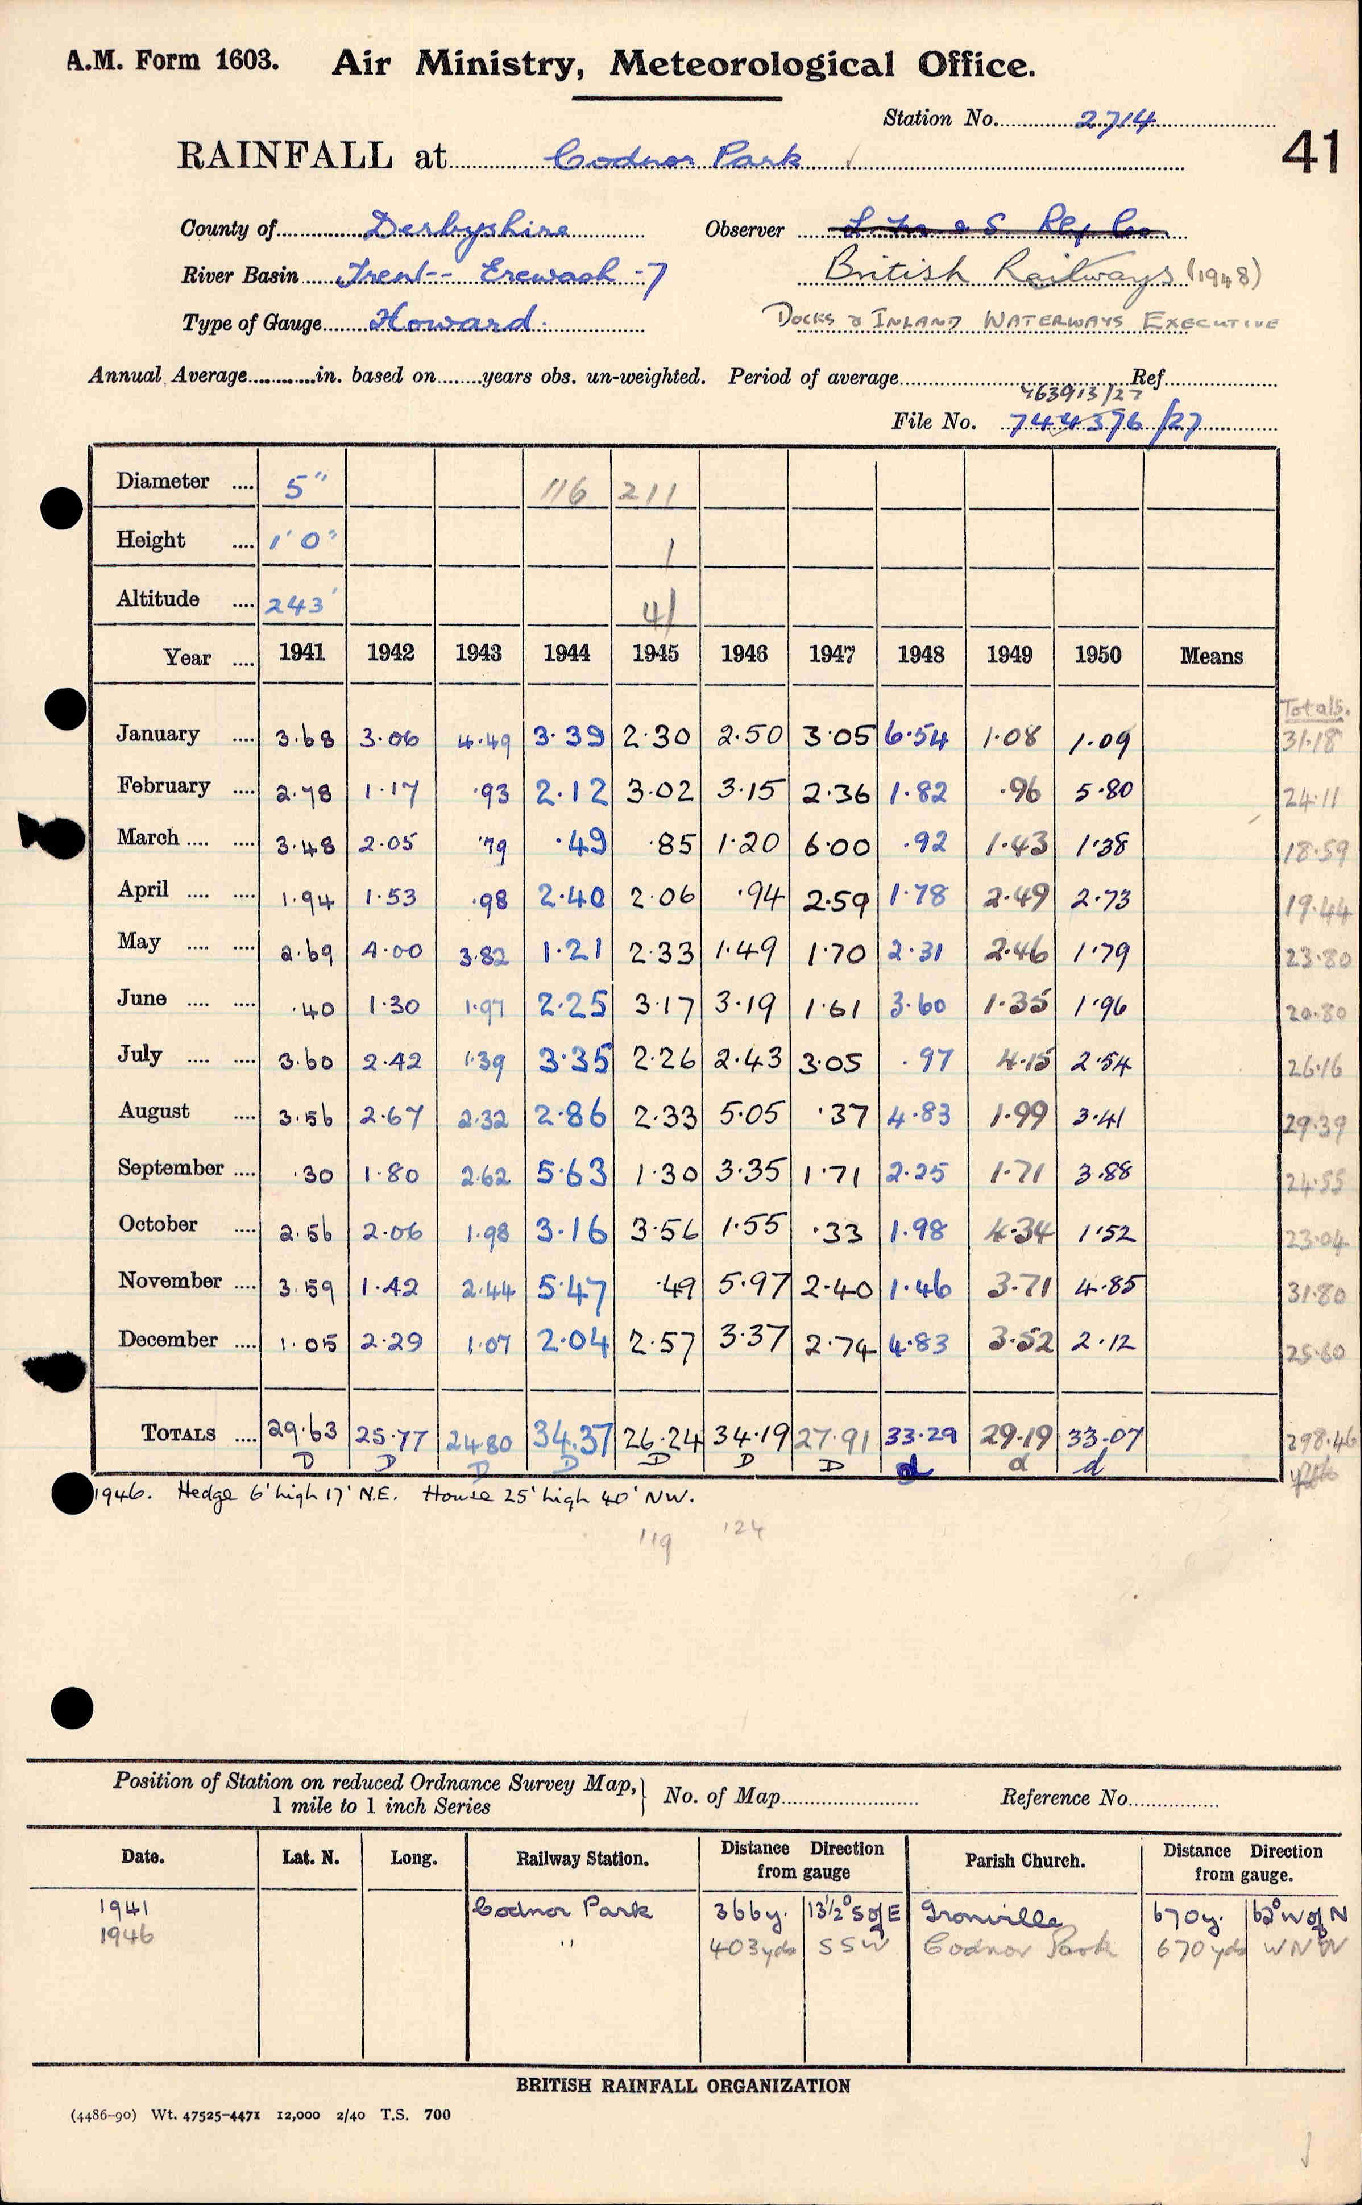 A.M. Form 1603. Air Ministry, Meteorological Office.
Station No. 2714
41
RAINFALL at Codnor Park
County of Derbyshire Observer L. M. & S Rly Co
River Basin Trent -- Erewash - 7 British Railways (1948)
Type of Gauge Howard. DOCKS & INLAND WATERWAYS EXECUTIVE
Annual Average in. based on years obs. un-weighted. Period of average Ref
463913/27
File No. 744376/27
Diameter 5" 116 211
Height 1'0" 1
Altitude 243' 41
Year 1941 1942 1943 1944 1945 1946 1947 1948 1949 1950 Means
Totals.
January 3.68 3.06 4.49 3.39 2.30 2.50 3.05 6.54 1.08 1.09 31.18
February 2.78 1.17 .93 2.12 3.02 3.15 2.36 1.82 .96 5.80 24.11
March 3.48 2.05 .79 .49 .85 1.20 6.00 .92 1.43 1.38 18.59
April 1.94 1.53 .98 2.40 2.06 .94 2.59 1.78 2.49 2.73 19.44
May 2.69 4.00 3.82 1.21 2.33 1.49 1.70 2.31 2.46 1.79 23.80
June .40 1.30 1.97 2.25 3.17 3.19 1.61 3.60 1.35 1.96 20.80
July 3.60 2.42 1.39 3.35 2.26 2.43 3.05 .97 4.15 2.54 26.16
August 3.56 2.67 2.32 2.86 2.33 5.05 .37 4.83 1.99 3.41 29.39
September .30 1.80 2.62 5.63 1.30 3.35 1.71 2.25 1.71 3.88 24.55
October 2.56 2.06 1.98 3.16 3.56 1.55 .33 1.98 4.34 1.52 23.04
November 3.59 1.42 2.44 5.47 .49 5.97 2.40 1.46 3.71 4.85 31.80
December 1.05 2.29 1.07 2.04 2.57 3.37 2.74 4.83 3.52 2.12 25.60
TOTALS 29.63 25.77 24.80 34.37 26.24 34.19 27.91 33.29 29.19 33.07 298.46
D D D D D D D d d d
1946. Hedge 6' high 17' N.E. House 25' high 40' NW.
119 124
Position of Station on reduced Ordnance Survey Map, No. of Map Reference No
1 mile to 1 inch Series
Date. Lat. N. Long. Railway Station. Distance Direction from gauge Parish Church. Distance Direction from gauge.
1941 Codnor Park 366y. 13½° S of E Ironville 670y. 62° W of N
1946 " 403yds SSW Codnor Park 670yds WNW
BRITISH RAINFALL ORGANIZATION
(4486-90) Wt. 47525-4471 12,000 2/40 T.S. 700